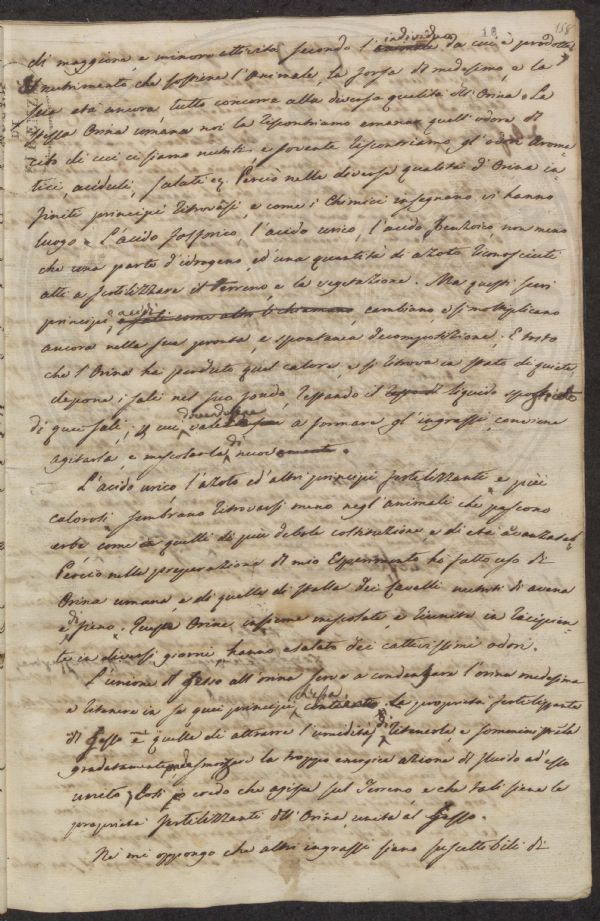 18 158
di maggiore, e minore attività secondo l'individuo da cui è prodotta
Il nutrimento che sostiene l'Animale, la forza di medesimo, e la
sua età ancora, tutto concorre alla diversa qualità dell'Orina. La
stessa Orina umana noi la riscontriamo emanare quell'odore di
cibo di cui ci siamo nutriti, e sovente riscontriamo gl'odori Aroma-
tici, aciduli, salati ec. Perciò nelle diverse qualità d'Orina in-
finiti principj ritrovasi, e come i Chimici insegnano, vi hanno
luogo. L'acido fosforico, l'acido urico, l'acido Benzoico, non meno
che una parte d'idrogeno, ed una quantità di azoto riconosciuti
atti a fertilizzare il Terreno, e la vegetazione. Ma questi suoi
principj acidi o sali come altri li chiamano, cambiano, e si moltiplicano
ancora nella sua pronta, e spontanea decomposizione. E tosto
che l'Orina ha perduto quel calore, e si ritrova in stato di quiete
depone i sali nel suo fondo, restando il liquido
di quei sali, il cui divenendone a formare gl'ingrassi, conviene
agitarla, e mescolarla di nuovo.
L'acido urico, l'azoto ed altri principj fertilizzanti e più
calorosi sembrano ritrovarsi meno negl'animali che pascono
erbe, come quelli di più debole costituzione, e di età avanzata.
Perciò nelle preparazione di mio Esperimento ho fatto uso di
Orina umana, e di quella di stalla dei Cavalli nutriti di avena
e di fieno. Queste Orine insieme mescolate, e riunite in recipien-
te in diversi giorni, hanno esalato dei cattivissimi odori.
L'unione di Gesso all'orina serve a condensare l'orina medesima
a ritenere in se quei principj, ch'essa contiene. La proprietà fertilizzante
di Gesso è quella di attrarre l'umidità, di ritenerla, e somministrarla
gradatamente, smorzare la troppo energica azione di fluido ad esso
unito. Così credo che agisca sul Terreno, e che tali siano le
proprietà fertilizzanti dell'Orina, unita al Gesso.
Nè mi oppongo che altri ingrassi siano suscettibili di